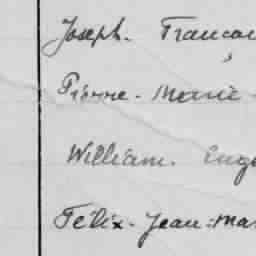 Joseph. Francoi
Pierre. Marie
William. Euge
Félix. Jean. Mar